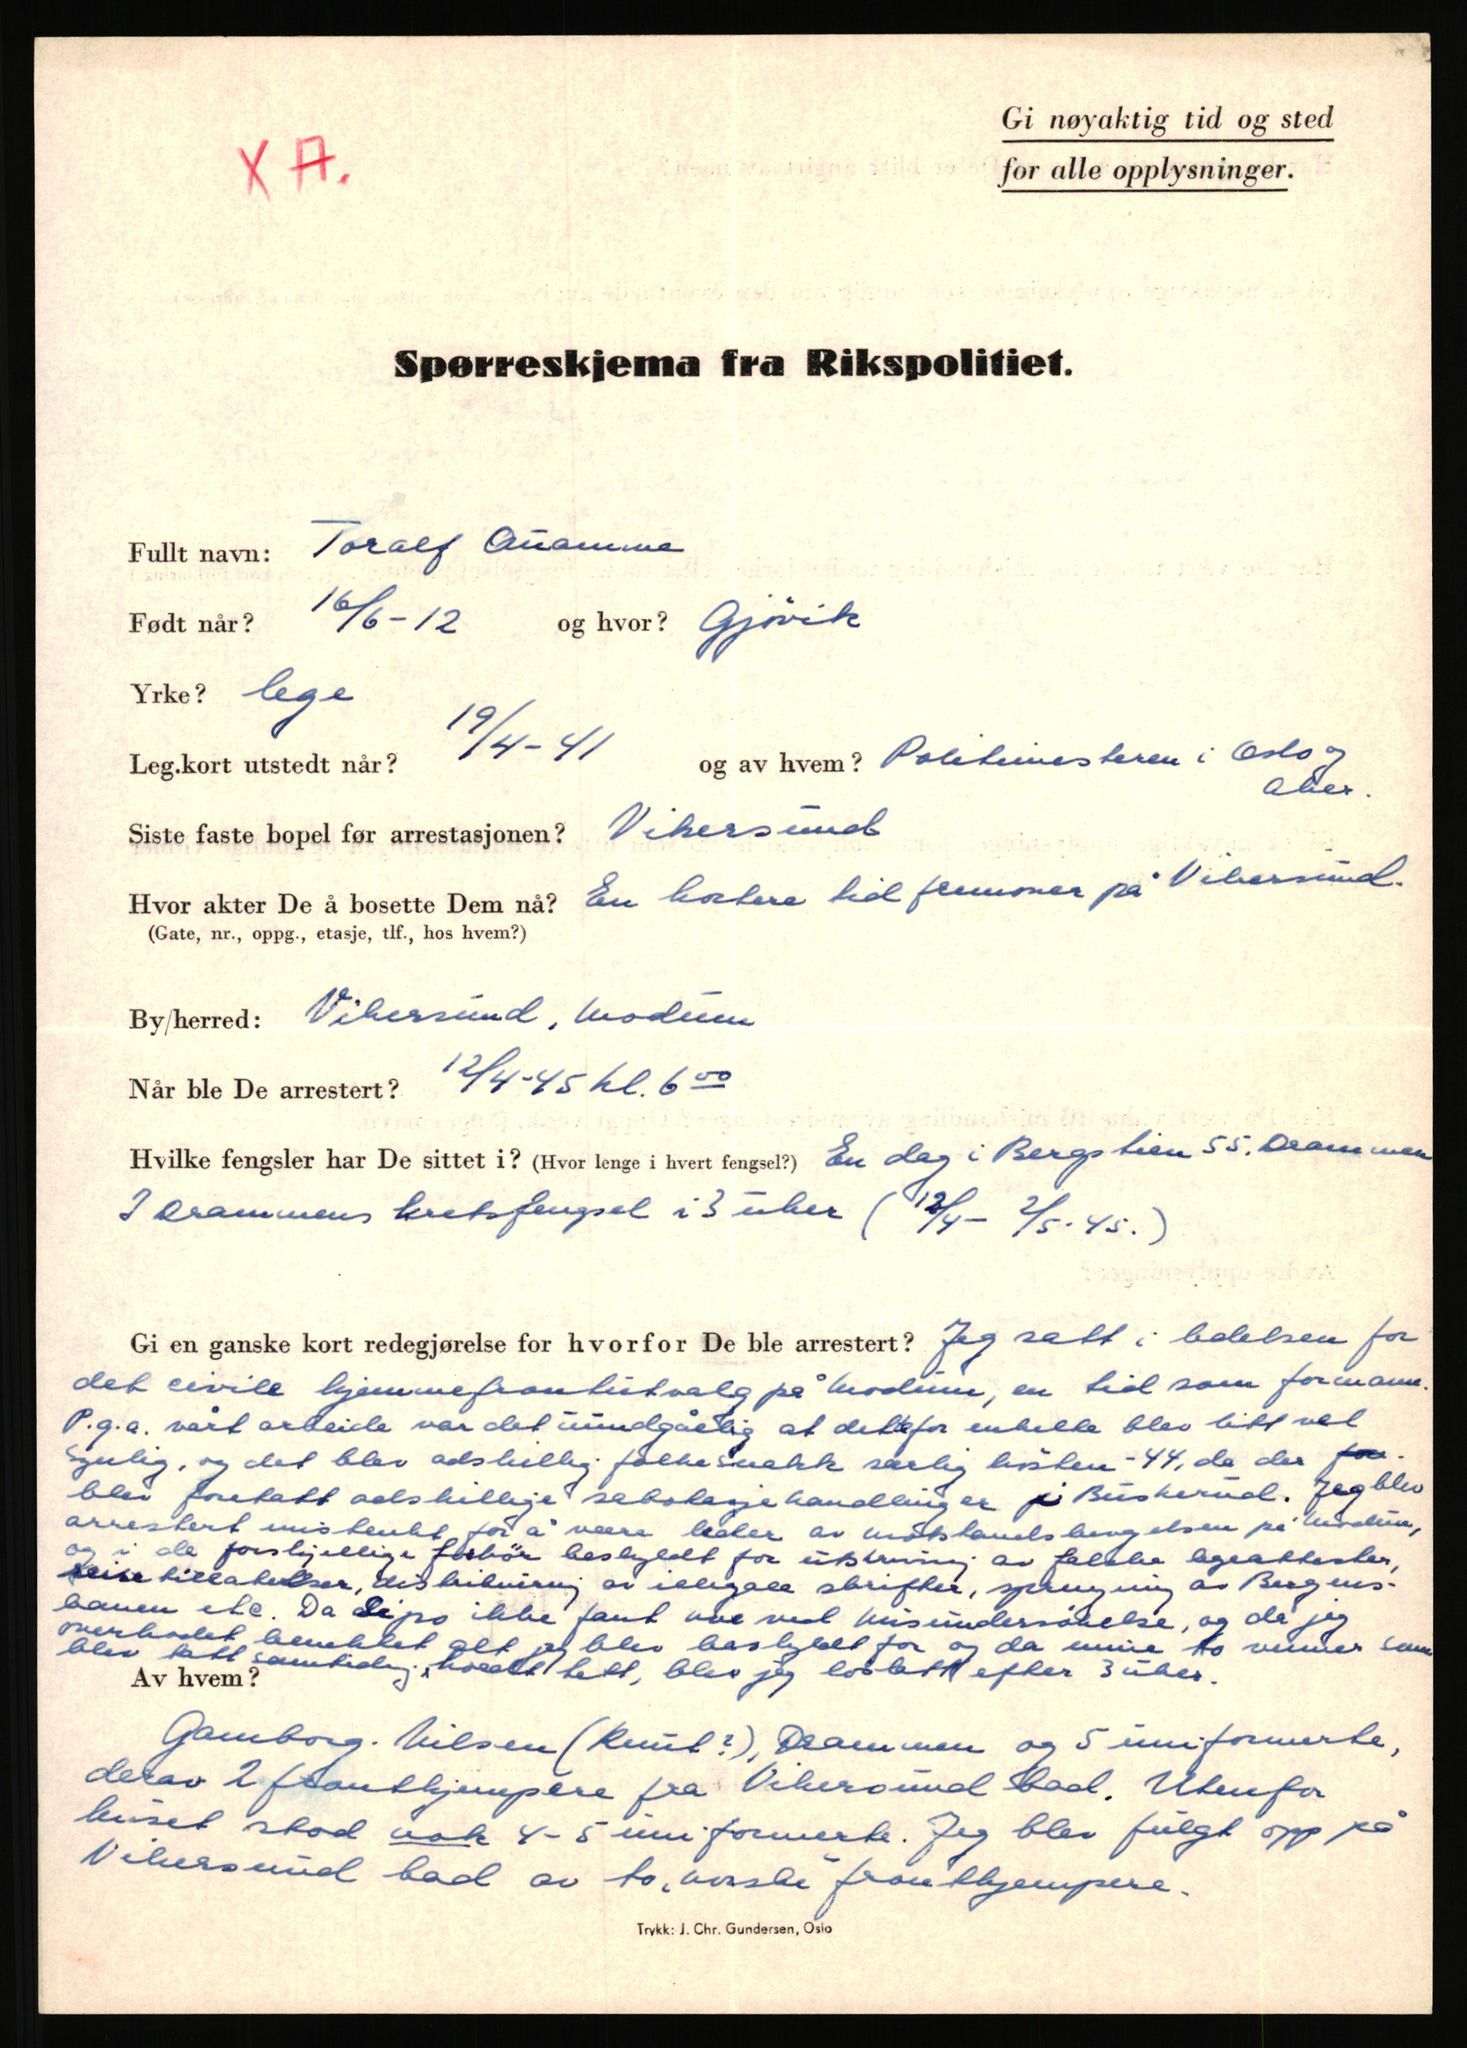 X A.
Gi nøyaktig tid og sted
for alle opplysninger.
Spørreskjema fra Rikspolitiet.
Fullt navn: Toralf
Født når? 16/6-12 og hvor? Gjövik
Yrke? lege
Leg.kort utstedt når? 19/4-41 og av hvem? Politimesteren i Oslo og
Aker.
Siste faste bopel før arrestasjonen? Vikersund
Hvor akter De å bosette Dem nå? En kortere tid fremover på Vikersund.
(Gate, nr., oppg., etasje, tlf., hos hvem?)
By/herred: Vikersund, Modum
Når ble De arrestert? 12/4-45 kl. 6 00
Hvilke fengsler har De sittet i? (Hvor lenge i hvert fengsel?) En dag i Bergstien 55. Drammen
I Drammens kretsfengsel i 3 uker (12/4- 2/5-45.)
Gi en ganske kort redegjørelse for hvorfor De ble arrestert? Jeg satt i ledelsen for
det civile hjemmefrontutvalg på Modum, en tid som formann.
P.g.a. vårt arbeide var det uundgåelig at dette for enkelte blev litt vel
synlig, og det blev adskillig folkesnakk særlig hösten -44, da der
blev foretatt adskillige sabotasjehandlinger i Buskerud. Jeg blev
arrestert mistenkt for å være leder av motstandsbevegelsen på Modum,
og i de forskjellige forhör beskyldt for utskrivning av falske legeattester,
reisetillatelser, distribuering av illegale skrifter, sprengning av Bergens-
banen etc. Da Sipo ikke fant noe ved husundersökelse, og da jeg
overhodet benektet alt jeg blev beskyldt for og da mine to venner som
blev tatt samtidig, holdt tett, blev jeg löslatt efter 3 uker.
Av hvem?
Gamborg-Nilsen (Knut?), Drammen og 5 uniformerte,
derav 2 frontkjempere fra Vikersund bad. Utenfor
huset stod nok 4-5 uniformerte. Jeg blev fulgt opp på
Vikersund bad av to norske frontkjempere.
Trykk: J. Chr. Gundersen, Oslo